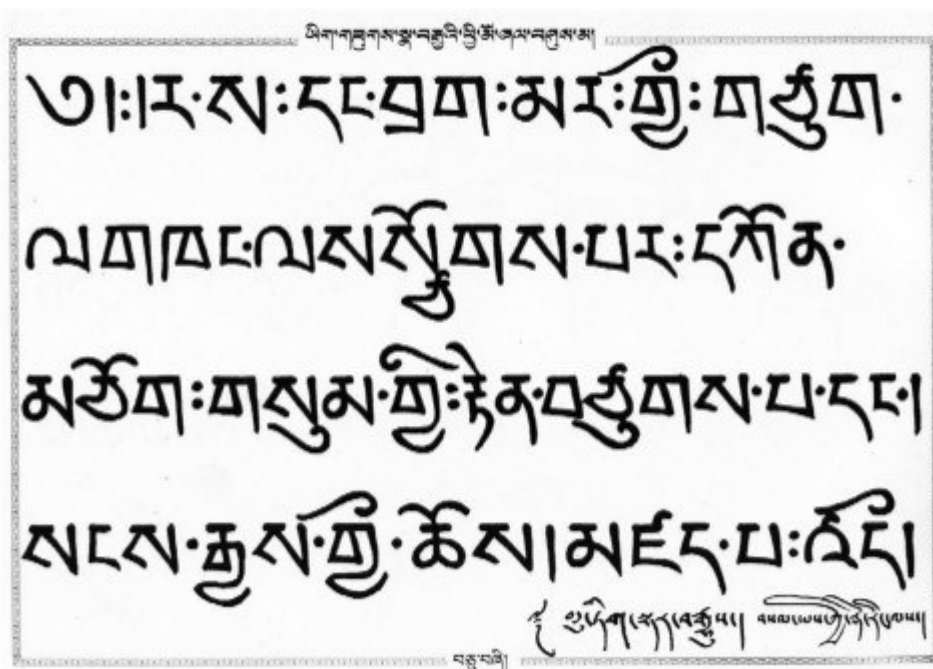 ཡིག་གཟུགས་སྣ་བརྒྱའི་ཕྱི་མོ་ཞལ་བཤུས་མ།
༧།:།ར་ས:དང་བྲག:མར:གྱྀ:གཙུག་
ལགཁང་ལསསྩོགས་པར:དཀོན་
མཆོག:གསུམ་གྱི:རྟེན་བཙུགས་པ་དང་།
སངས་རྒྱས་གྱྀ་ཆོས།མཛད་པ:འདྀ།
བཅུ་བཞི།